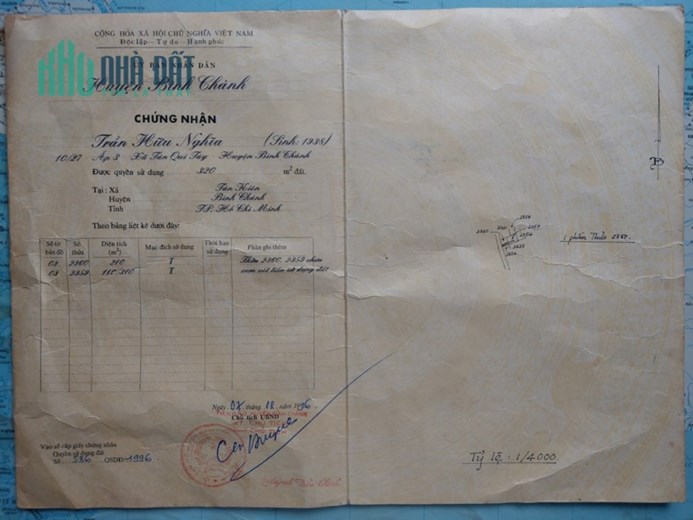 CỘNG HÒA XÃ HỘI CHỦ NGHĨA VIỆT NAM
Độc lập - Tự do - Hạnh phúc
KHO NHÀ ĐẤT
ỦY BAN NHÂN DÂN
Huyện Bình Chánh
CHỨNG NHẬN
Trần Hữu Nghĩa (Sinh: 1938)
10/27 Ấp 3 Xã Tân Quí Tây Huyện Bình Chánh
Được quyền sử dụng 320 m² đất.
Tại: Xã Tân Kiên
Huyện Bình Chánh
Tỉnh TP. Hồ Chí Minh
Theo bảng liệt kê dưới đây:
Số tờ bản đồ Số thửa Diện tích (m²) Mục đích sử dụng Thời hạn sử dụng Phần ghi thêm
03 2360 210 T Thửa 2360, 2359 chưa
03 2359 T sử dụng đất
Ngày 07 tháng năm 1996
Chủ tịch UBND
Vào sổ cấp giấy chứng nhận
Quyền sử dụng đất
Số QSDĐ 1996
B
1 phần Thửa
Tỷ lệ: 1/4000